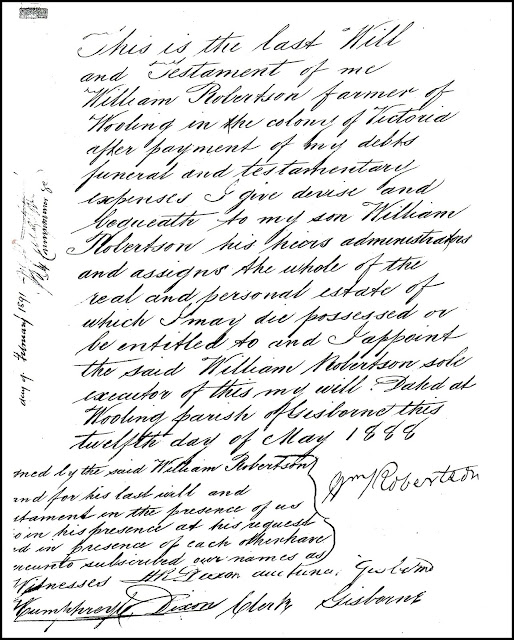 This is the last Will
and Testament of me
William Robertson farmer of
Wooling in the colony of Victoria
after payment of my debts
funeral and testamentary
expenses I give devise and
bequeath to my son William
Robertson his heirs administrators
and assigns the whole of the
real and personal estate of
which I may die possessed or
be entitled to and I appoint
the said William Robertson sole
executor of this my will. Dated at
Wooling parish of Gisborne this
twelfth day of May 1888
ned by the said William Robertson
nd for his last will and
tament in the presence of us
o in his presence at his request
d in presence of each other have
reunto subscribed our names as
Witnesses
Wm Robertson
Dixon Gisborne
Humphrey Dixon Clerk Gisborne
day of February 1891